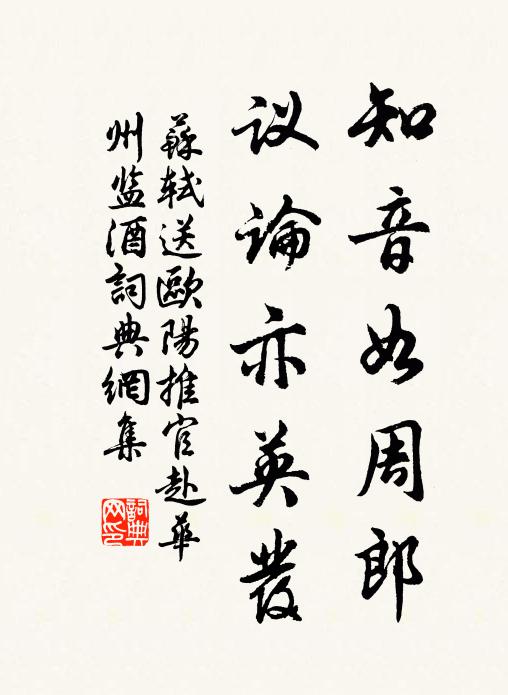 知音如周郎
议論亦英發
蘇軾送歐陽推官赴華
州监酒詞典網集
詞典
网印